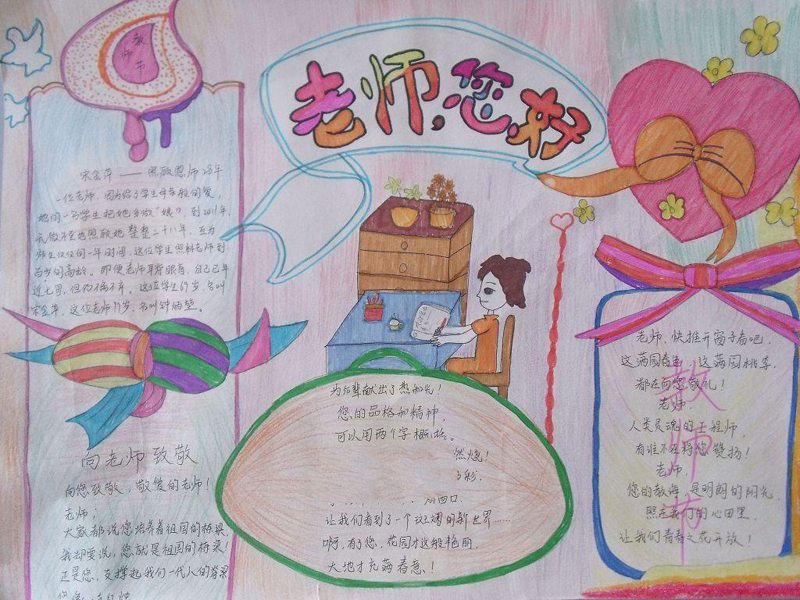 教师节
老师,您好
宋金萍——照顾恩师28年
一位老师,因为
始的一名学生把她当做“娘”,到2011年,
照顾她整整二十八年。只为
师生仅仅的一年时间,这位学生照料老师到
百岁的高龄。即使老师
近七旬,但仍
宋金萍,这位老师
向老师致敬
向您致敬,敬爱的老师!
老师,
大家都说您培养着祖国的栋梁,
我却要说,您就是祖国的栋梁!
正是您,支撑起我们一代人的脊梁
为后辈献出了热和光!
您的品格和精神,
可以用两个字概括。
燃烧!
让我们看到了一个斑斓的新世界……
啊,有了您,花园才这般艳丽,
大地才充满春意!
老师,快推开窗子看吧,
这满园春色,这满园桃李,
都在向您敬礼!
老师,
人类灵魂的工程师,
有谁不在将您赞扬!
老师,
您的教诲,是明朗的阳光,
照在我们的心田里,
让我们青春之花开放!
教师节